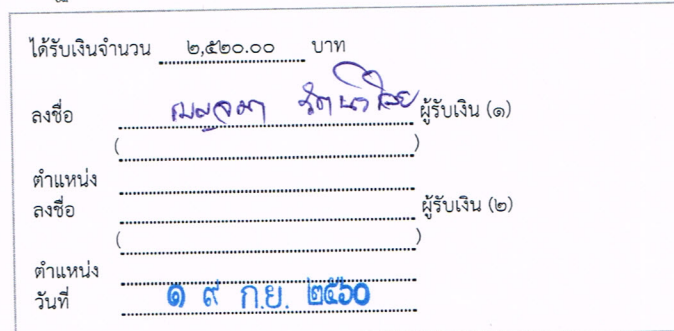 ได้รับเงินจำนวน ๒,๕๒๐.๐๐ บาท
ลงชื่อ ผู้รับเงิน (๑)
( )
ตำแหน่ง
ลงชื่อ ผู้รับเงิน (๒)
( )
ตำแหน่ง
วันที่ ๑ ๙ ก.ย. ๒๕๖๐